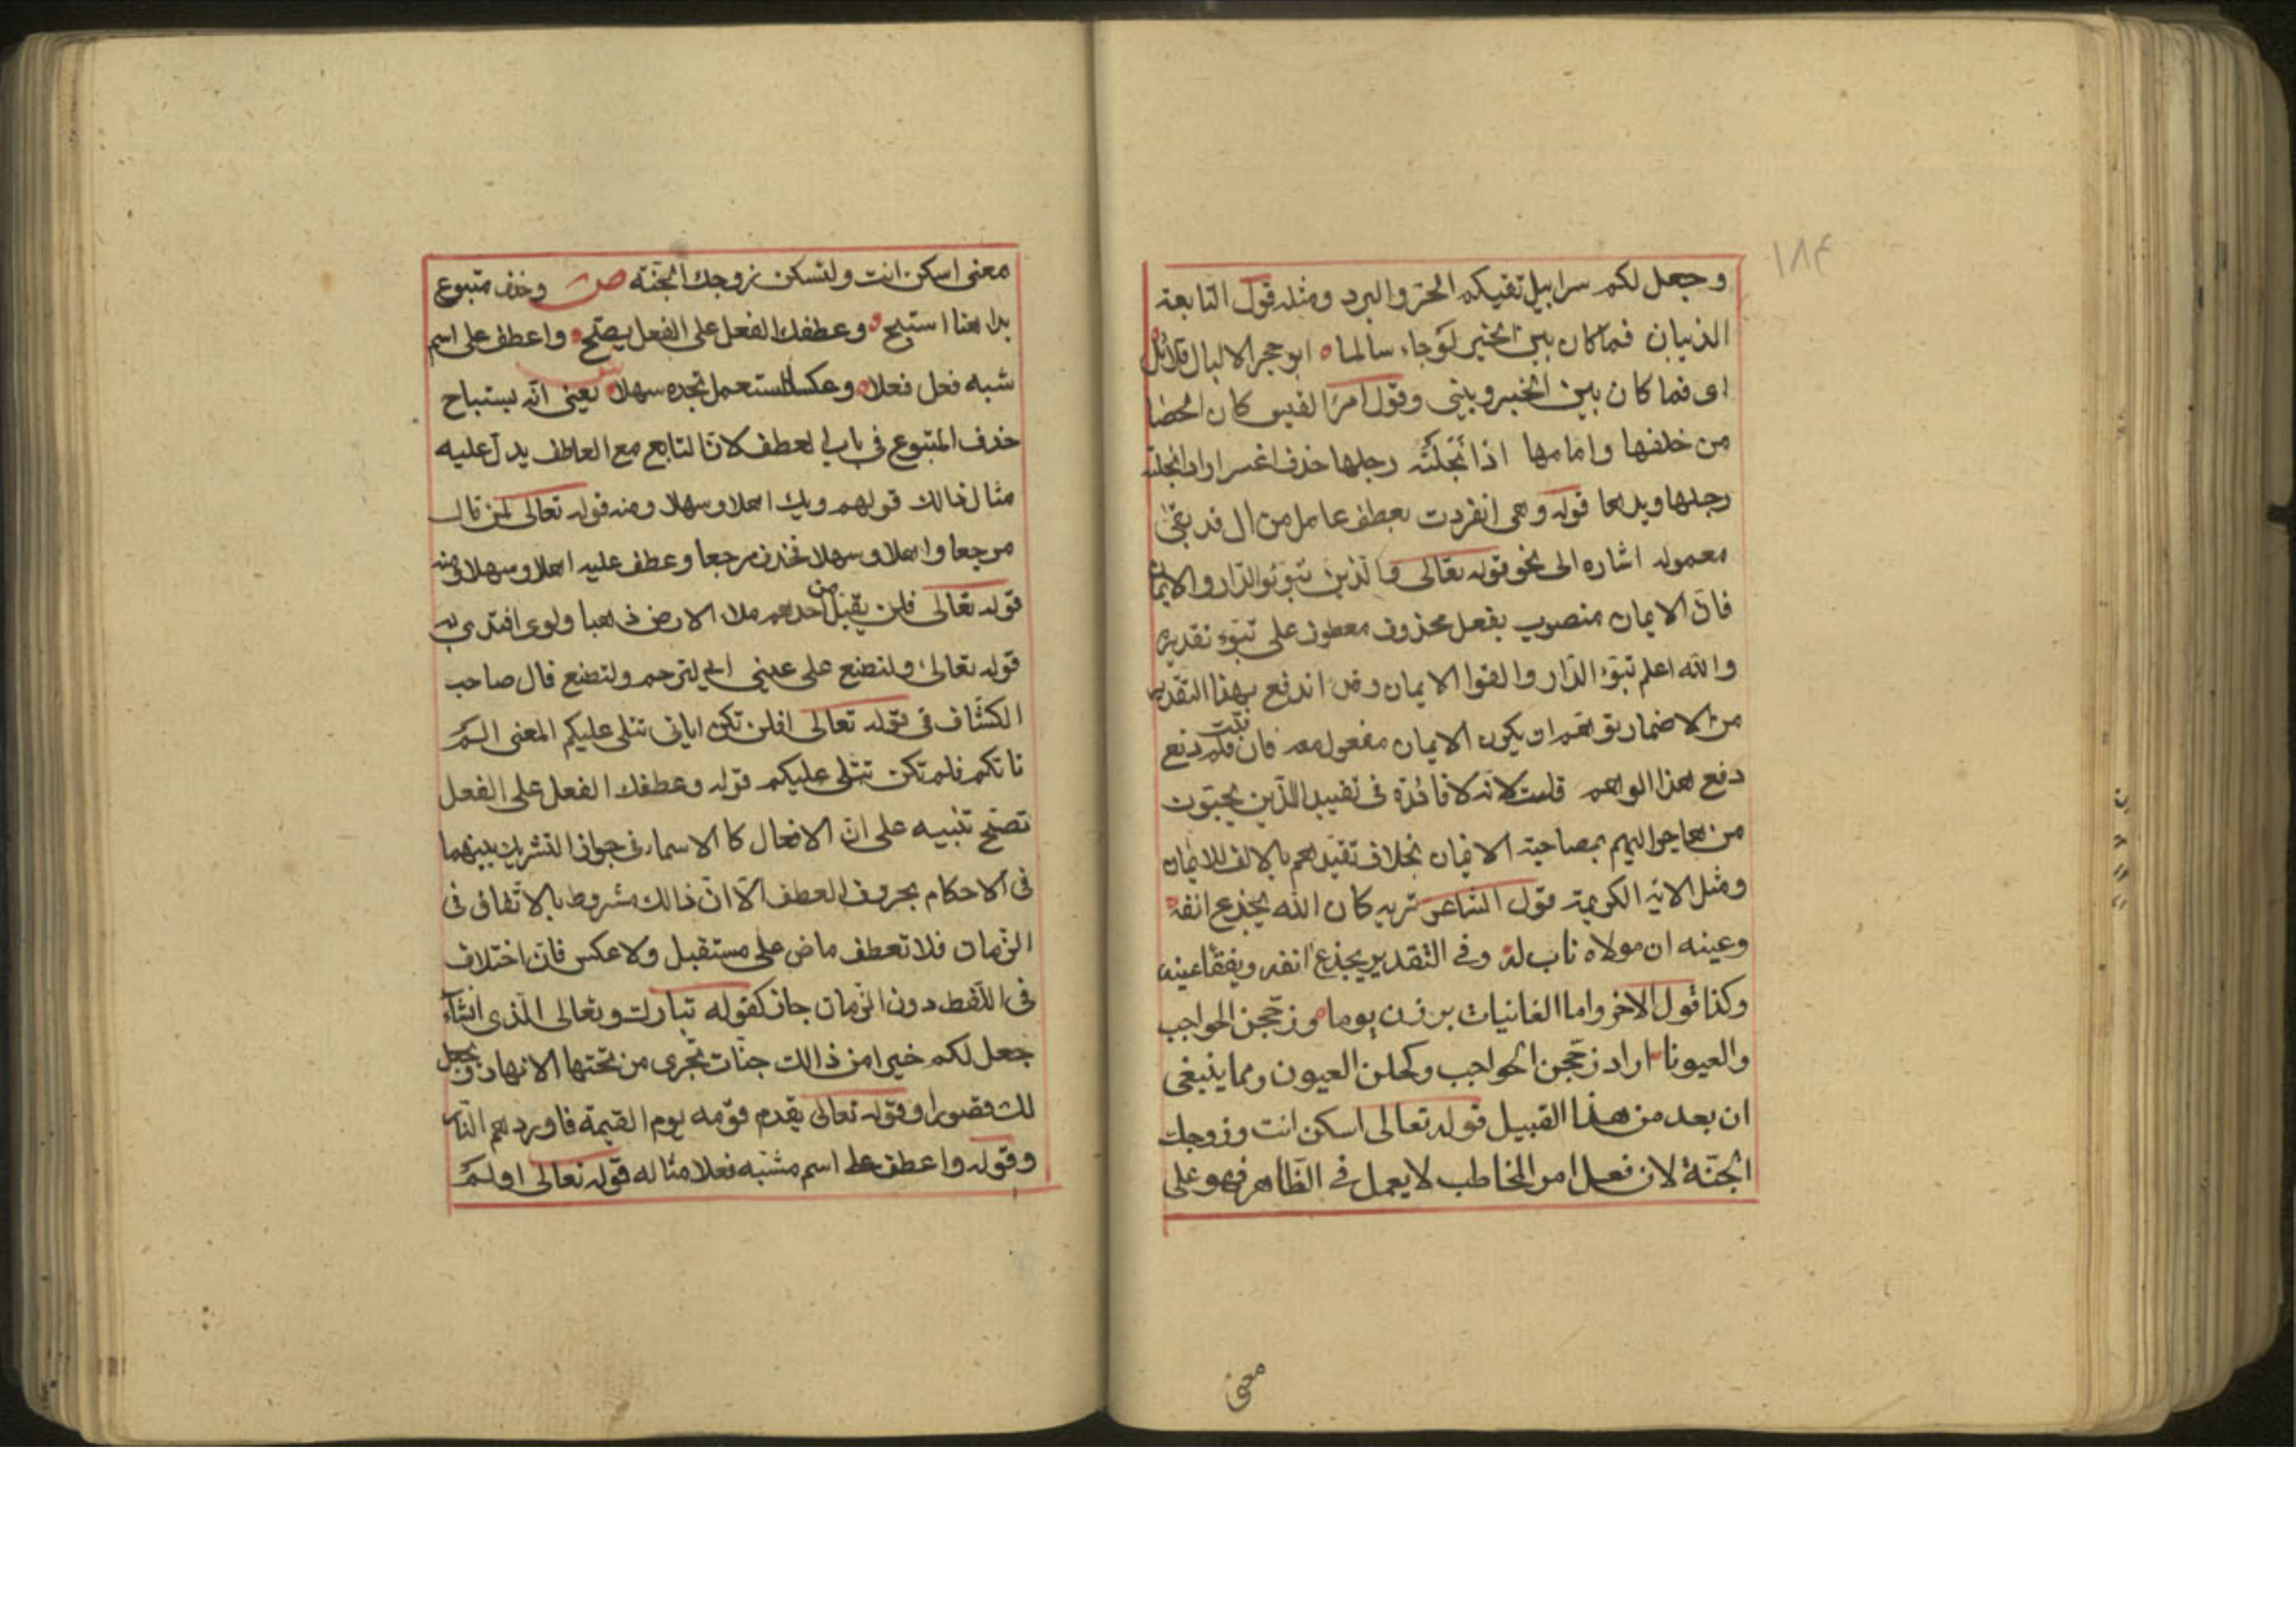 ١٨٤
وجعل لكم سرابيل تقيكم الحر والبرد ومثله قول النابعة
الذبيان فما كان بين الخير لوجاء سالما ابو حجر الا ليال قلائل
اى فما كان بين الخير وبينى وقول امرٔ القيس كان الحصا
من خلفها وامامها اذا نجلته رجلها خذف اعسر اراد انجلته
رجلها ويدها قوله وهى انفردت بعطف عامل من ال قد بقى
معموله اشاره الى نحو قوله تعالى والذين تبوئو الدار والايمان
فان الايمان منصوب بفعل محذوف معطوف على تبوء تقديره
والله اعلم تبوء الدار والفوا الايمان وقد اندفع بهذا التقدير
من الاضمار توهم ان يكون الايمان مفعول معه فان قلت فلم دفع
دفع هذا الواهم قلت لانه لا فائدة فى تقييد الذين يحبون
من هاجر اليهم بمصاحبة الايمان بخلاف تقيدهم بالالف للايمان
ومثل الاية الكريمة قول الشاعر تريه كان الله يجذع انفه
وعينه ان مولاه ناب له وفى التقدير يجذع انفه ويفقأ عينه
وكذا قول الاخر واما الغانيات برزن يوما وزججن الحواجب
والعيونا اراد زججن الحواجب وكحلن العيون ومما ينبغى
ان يعد من هذا القبيل قوله تعالى اسكن انت وزوجك
الجنة لان فعل امر المخاطب لا يعمل فى الظاهر فهو على
معنى
معنى اسكن انت ولتسكن زوجك الجنة ص وحذف متبوع
بدا هنا استبح وعطفك الفعل على الفعل يصح واعطف على اسم
شبه فعل فعلا وعكسا استعمل تجده سهلا يعنى انه يستباح
حذف المتبوع فى باب العطف لان التابع مع العاطف يدل عليه
مثال ذالك قولهم وبك اهلا وسهلا ومنه قوله تعالى لمن قال
مرجعا واهلا وسهلا فحذف مرجعا وعطف عليه اهلا وسهلا ومنه
قوله تعالى فلن يقبل من احدهم ملا الارض ذهبا ولوى افتدى به
قوله تعالى ولتصنع على عينى اى لترحم ولتصنع قال صاحب
الكشاف فى قوله تعالى افلن تكن اياتى تتلى عليكم المعنى الم
تاتكم فلم تكن تتلى عليكم قوله وعطفك الفعل على الفعل
تصح تنبيه على ان الافعال كا الاسماء فى جواز التشريك بينهما
فى الاحكام بحروف العطف الا ان ذالك مشروط بالاتفاق فى
الزمان فلا تعطف ماض على مستقبل ولا عكس فان اختلاف
فى اللفظ دون الزمان جاز كقوله تبارك وتعالى الذى انشآء
جعل لكم خيرا من ذالك جنات تجرى من تحتها الانهار ويجعل
لك قصورا وقوله تعالى يقدم قومه يوم القيمة فاوردهم النار
وقوله واعطف على اسم مشبه فعلا مثاله قوله تعالى اولم